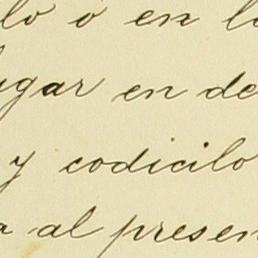 lo ó en l
ugar en de
y codicilo
a al presen